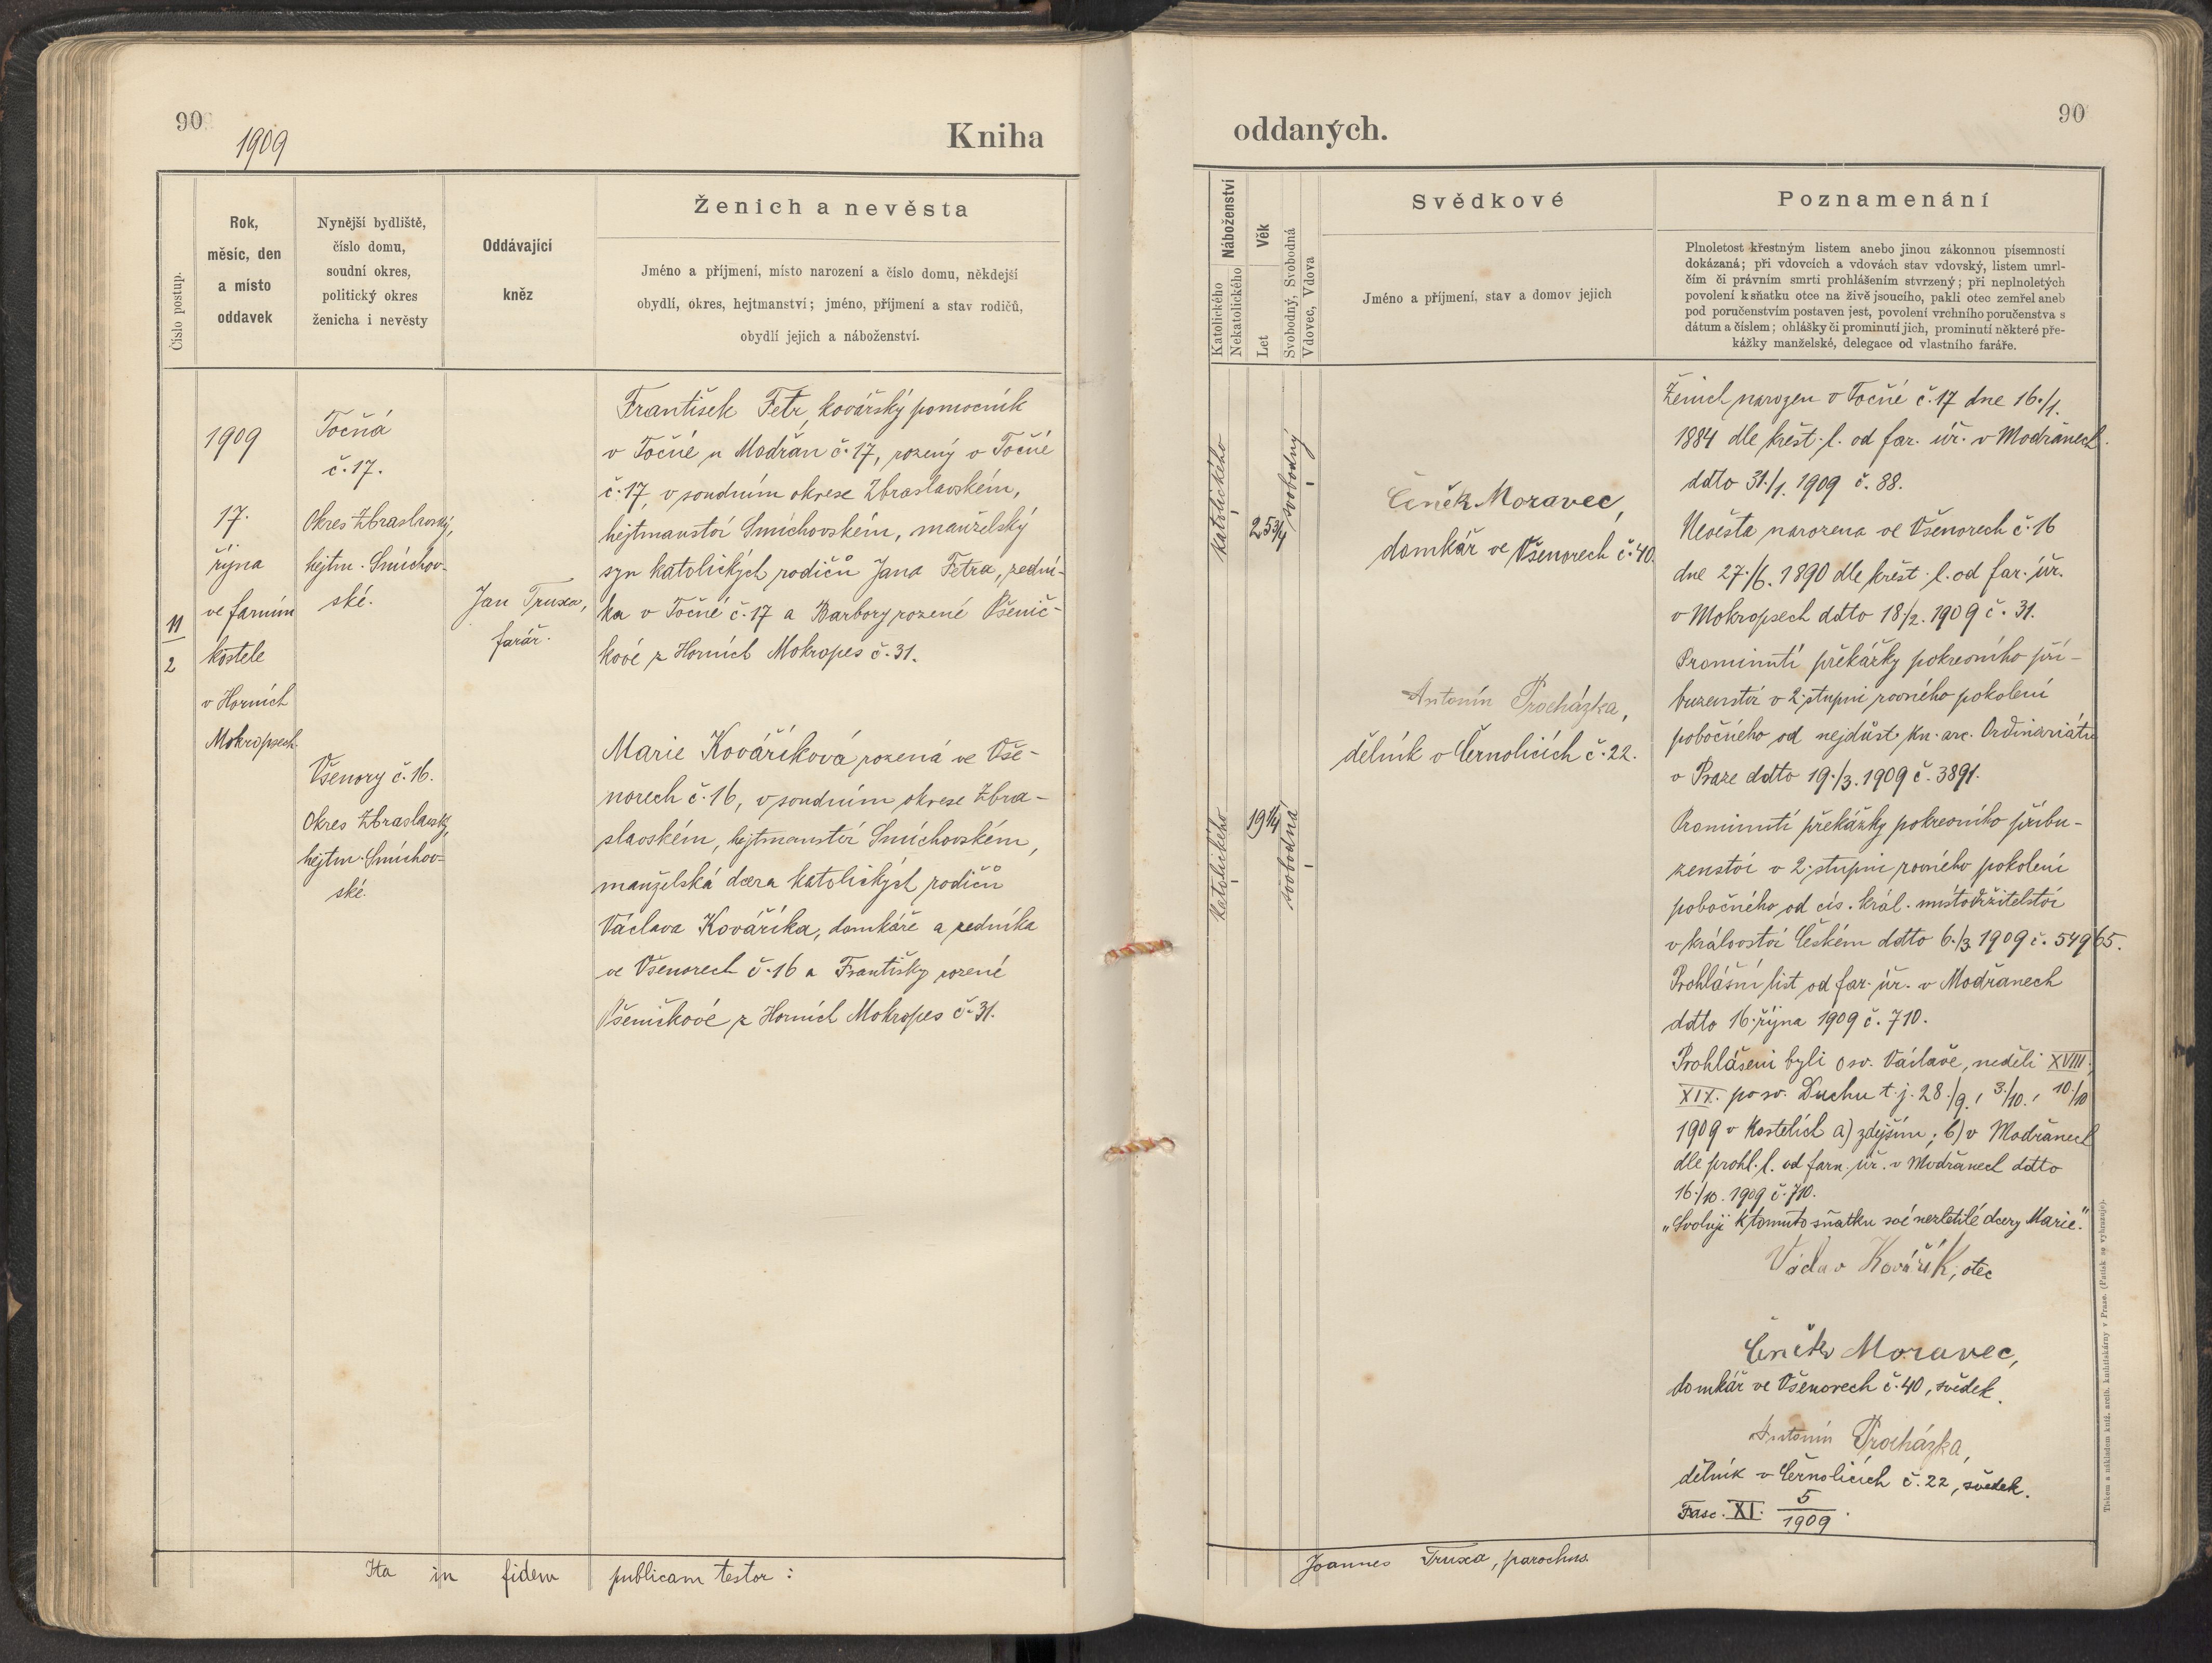 90
1909
Kniha
Číslo postup.
Rok,
měsíc, den
a místo
oddavek
Nynější bydliště,
číslo domu,
soudní okres,
politický okres
ženicha i nevěsty
Oddávající
kněz
Ženich a nevěsta
Jméno a příjmení, místo narození a číslo domu, někdejší
obydlí, okres, hejtmanství; jméno, příjmení a stav rodičů,
obydlí jejich a náboženství.
11
2
1909
17.
října
ve farním
kostele
v Horních
Mokropsech.
Točná
č. 17.
Okres Zbraslavský,
hejtm. Smíchov-
ské.
Všenory č. 16.
Okres Zbraslavský,
hejtm. Smíchov-
ské.
Jan Truxa,
farář.
František Fetr, kovářský pomocník
v Točné u Modřan č. 17, rozený v Točné
č. 17, v soudním okrese Zbraslavském,
hejtmanství Smíchovském, manželský
syn katolických rodičů Jana Fetra, zední-
ka v Točné č. 17 a Barbory rozené Pšenič-
kové z Horních Mokropes č. 31.
Marie Kováříková rozená ve Vše-
norech č. 16, v soudním okrese Zbra-
slavském, hejtmanství Smíchovském,
manželská dcera katolických rodičů
Václava Kováříka, domkáře a zedníka
ve Všenorech č. 16 a Františky rozené
Pšeničkové z Horních Mokropes č. 31.
Ita in fidem publicam testor:
oddaných.
90
Náboženství
Katolického
Nekatolického
Věk
Let
Svobodný, Svobodná
Vdovec, Vdova
Svědkové
Jméno a příjmení, stav a domov jejich
Poznamenání
Plnoletost křestným listem anebo jinou zákonnou písemností
dokázaná; při vdovcích a vdovách stav vdovský, listem umrl-
čím či právním smrti prohlášením stvrzený; při neplnoletých
povolení k sňatku otce na živě jsoucího, pakli otec zemřel aneb
pod poručenstvím postaven jest, povolení vrchního poručenstva s
dátum a číslem; ohlášky či prominutí jich, prominutí některé pře-
kážky manželské, delegace od vlastního faráře.
katolického
25 3/4
svobodný
katolického
19 1/4
svobodná
Čeněk Moravec,
domkář ve Všenorech č. 40.
Antonín Procházka,
dělník v Černolicích č. 22.
Ženich narozen v Točné č. 17 dne 16./1.
1884 dle křest. l. od far. úř. v Modřanech.
ddto 31./1. 1909 č. 88.
Nevěsta narozena ve Všenorech č. 16
dne 27./6. 1890 dle křest. l. od far. úř.
v Mokropsech ddto 18/2. 1909 č. 31.
Prominutí překážky pokrevního pří-
buzenství v 2. stupni rovného pokolení
pobočného od nejdůst. kn. arc. Ordinariátu
v Praze ddto 19./3. 1909 č. 3891.
Prominutí překážky pokrevního příbu-
zenství v 2. stupni rovného pokolení
pobočného od cís. král. místodržitelství
v království Českém ddto 6./3. 1909 č. 54965.
Prohlášní list od far. úř. v Modřanech
ddto 16. října 1909 č. 710.
Prohlášeni byli o sv. Václavě, neděli XVIII.,
XIX. po sv. Duchu t. j. 28./9., 3./10., 10./10
1909 v kostelích a) zdejším; b) v Modřanech
dle prohl. l. od farn. úř. v Modřanech ddto
16./10. 1909 č. 710.
„Svoluji k tomuto sňatku své nezletilé dcery Marie."
Václav Kovářík, otec
Čeněk Moravec,
domkář ve Všenorech č. 40, svědek.
Antonín Procházka,
dělník v Černolicích č. 22, svědek.
Fasc. XI. 5
1909.
Joannes Truxa, parochus.
Tiskem a nákladem kníž. arcib. knihtiskárny v Praze. (Patisk se vyhrazuje).